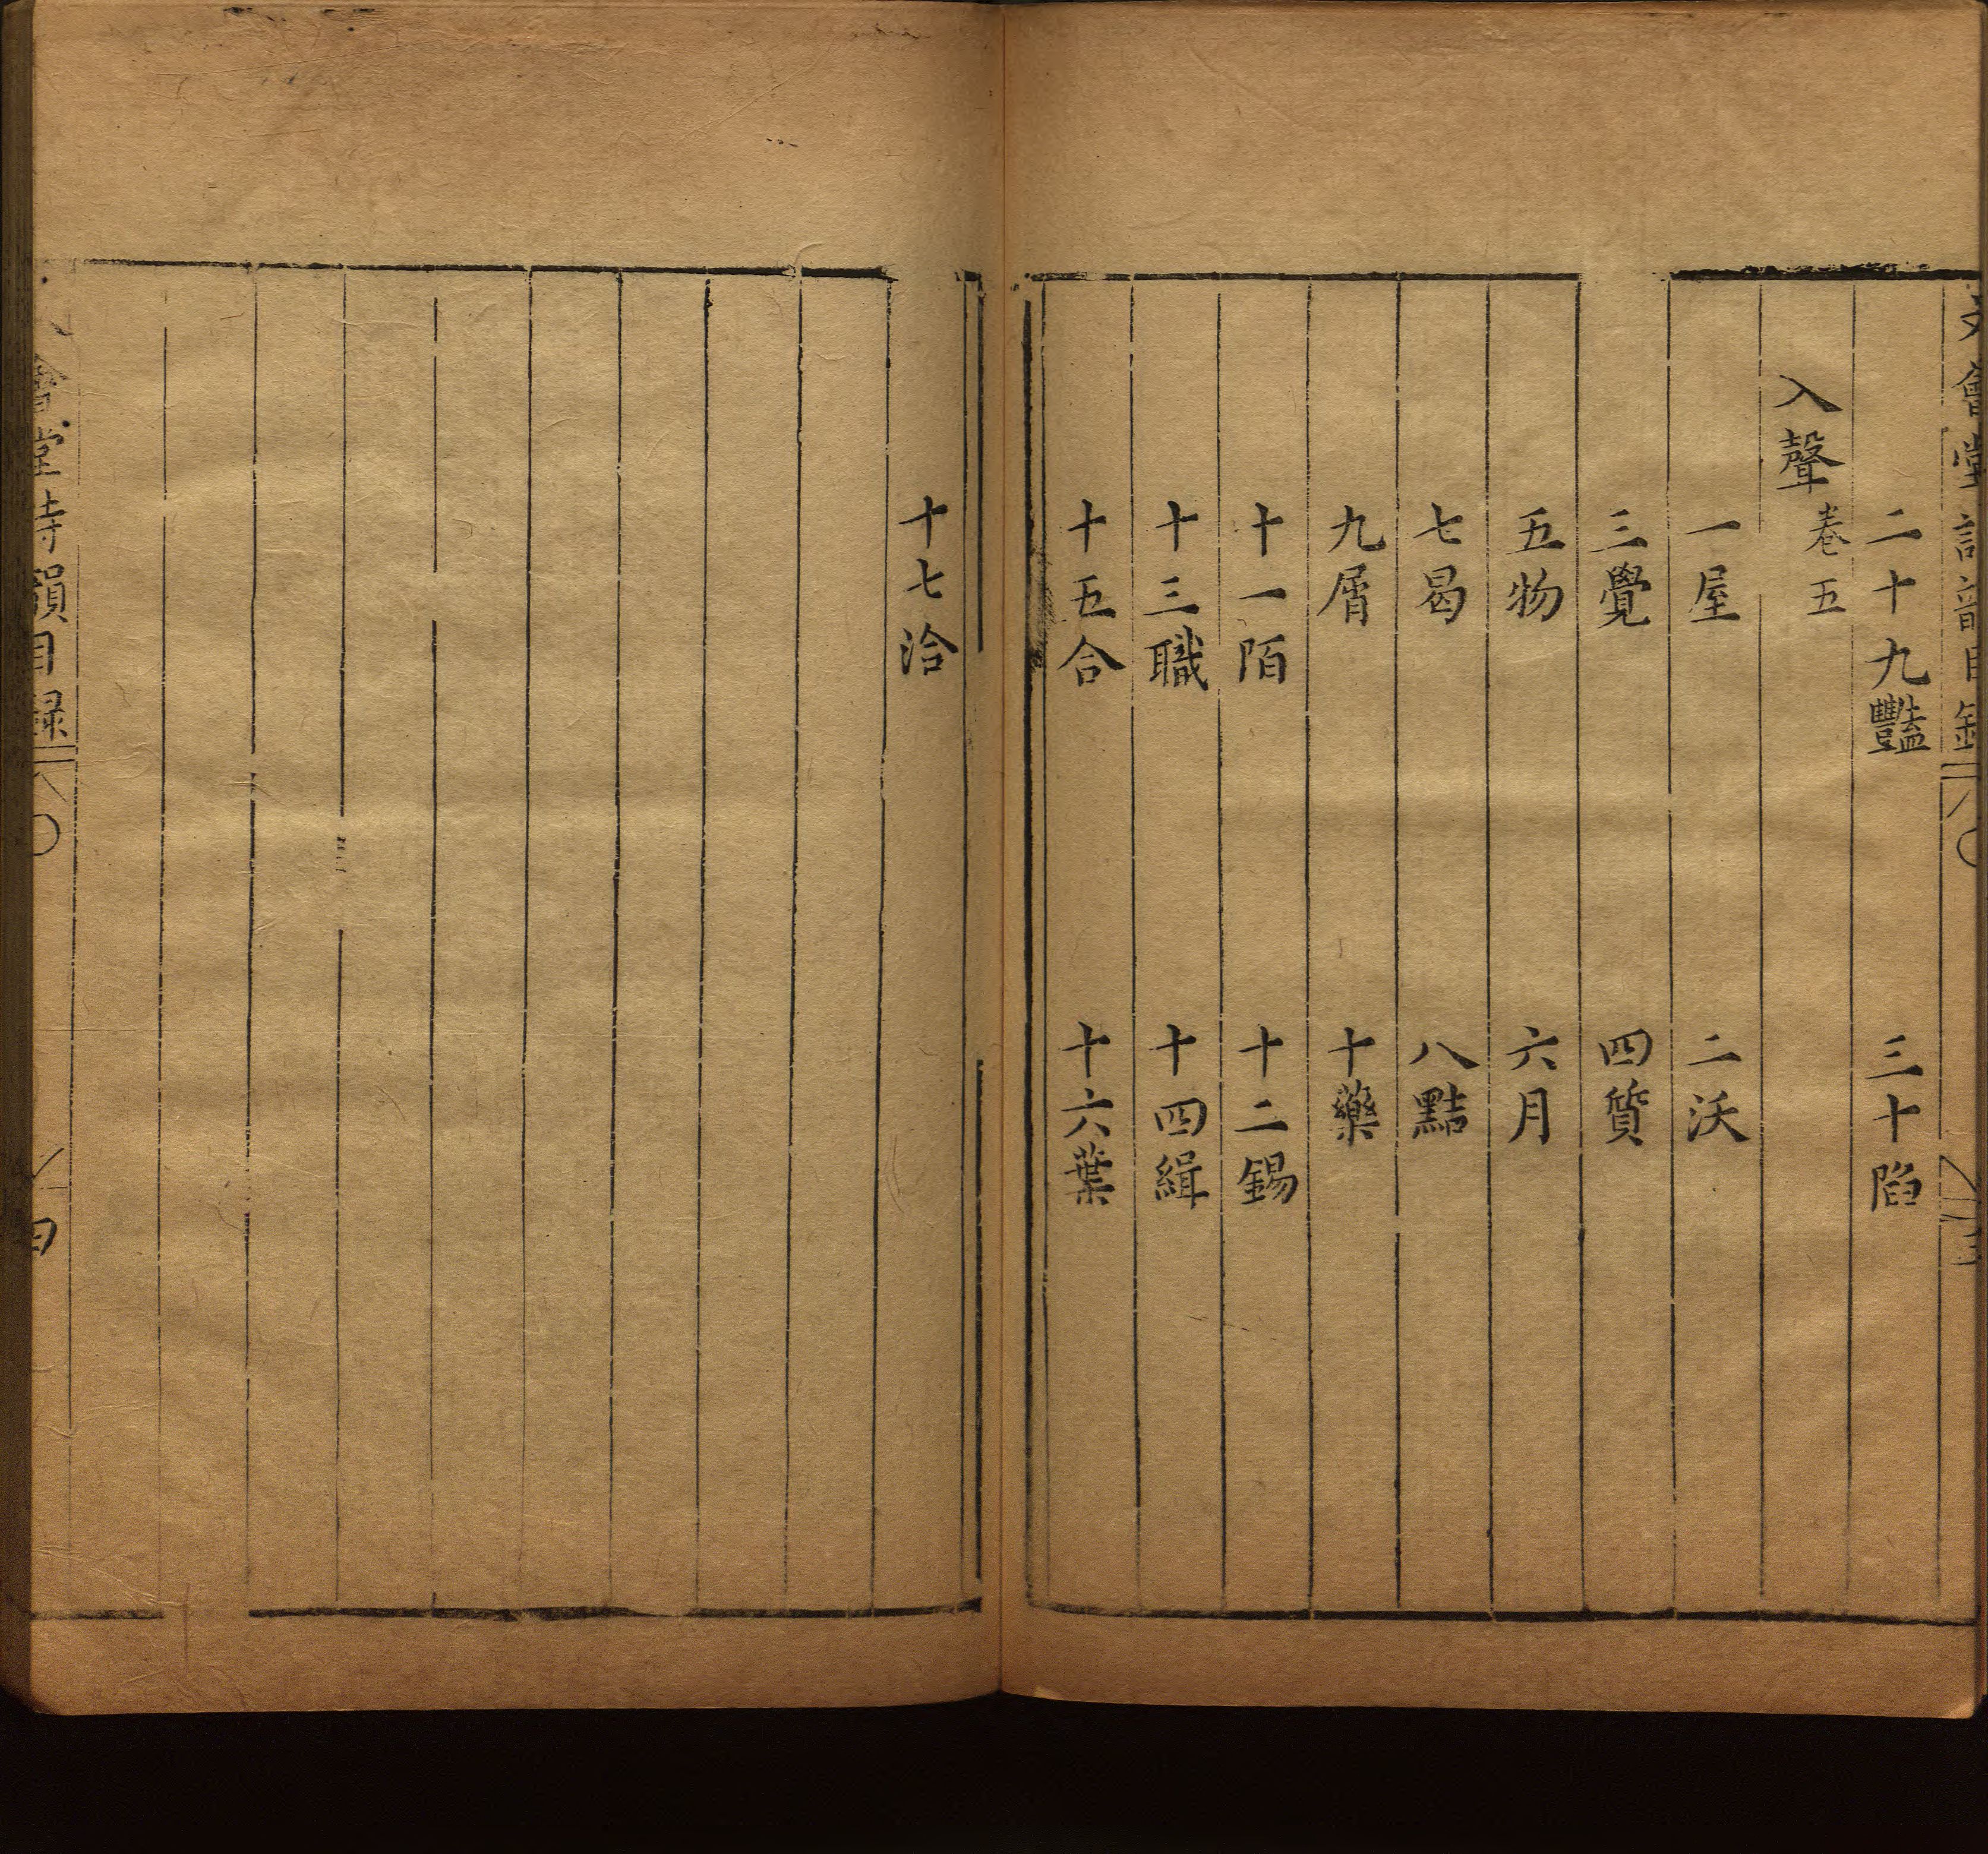 會堂詩韻目錄
二十九豔 三十陷
入聲 卷五
一屋 二沃
三覺 四質
五物 六月
七曷 八黠
九屑 十藥
十一陌 十二錫
十三職 十四緝
十五合 十六葉
十七洽
會堂詩韻目録 四